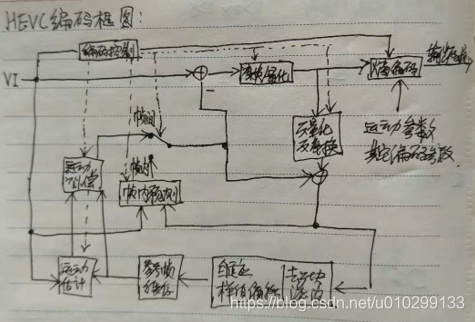 HEVC编码框图:
编码控制
VI
变换量化
熵编码
输出码流
帧间
反量化
反变换
运动参数&
其它编码参数
运动
补偿
帧内
帧内预测
运动
估计
参考帧
缓存
自适应
样值偏移
去方块
滤波
https://blog.csdn.net/u010299133